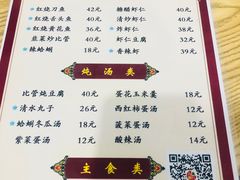 ★红烧刀鱼 42元 糖醋虾仁 40元
★红烧舌头鱼 40元 清炒虾仁 40元
★红烧黄花鱼 36元 ★炸虾仁 38元
韭菜炒比管 40元 虾仁豆腐 32元
★辣蛤蜊 18元 ★香辣虾 39元
炖汤类
比管炖豆腐 40元 蛋花玉米羹 18元
★清水丸子 26元 西红柿蛋汤 12元
★蛤蜊冬瓜汤 18元 菠菜蛋汤 12元
紫菜蛋汤 12元 酸辣汤 14元
主食类